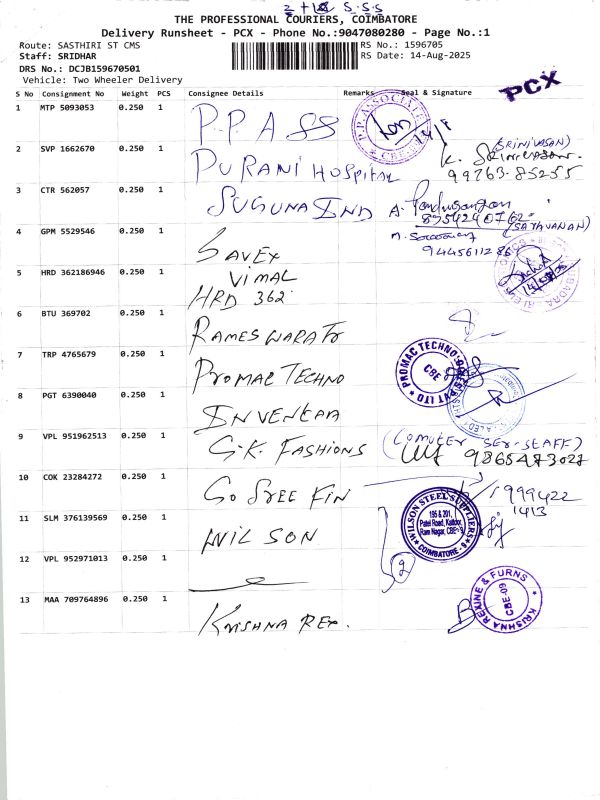 THE PROFESSIONAL COURIERS, COIMBATORE
Delivery Runsheet - PCX - Phone No.:9047080280 - Page No.:1
Route: SASTHIRI ST CMS
RS No.: 1596705
Staff: SRIDHAR
RS Date: 14-Aug-2025
DRS No.: DCJB159670501
Vehicle: Two Wheeler Delivery
PCX
S No Consignment No Weight PCS Consignee Details Remarks Seal & Signature
1 MTP 5093053 0.250 1 P.P.A SS
2 SVP 1662670 0.250 1 PURANI HOSPITAL K. SRINIVASAN. (SRINIVASAN)
99763-85255
3 CTR 562057 0.250 1 SUGUNA IND
(SARAVANAN)
4 GPM 5529546 0.250 1 SAVEX 9445611286
VIMAL
5 HRD 362186946 0.250 1 HRD 362
6 BTU 369702 0.250 1 RAMESWARA Tr
7 TRP 4765679 0.250 1 PROMAC TECHNO PROMAC TECHNO CBE
8 PGT 6390040 0.250 1
9 VPL 951962513 0.250 1 G.K. FASHIONS (COMUTER SER-STAFF)
10 COK 23284272 0.250 1 GO SREE FIN 1999422
1413
11 SLM 376139569 0.250 1 WILSON WILSON STEEL SUPPLIERS
195 & 201,
Patel Road, Kattoor,
Ram Nagar, CBE-9
COIMBATORE - 9
12 VPL 952971013 0.250 1
13 MAA 709764896 0.250 1 KRISHNA REX. KRISHNA REXINE & FURNS CBE-09